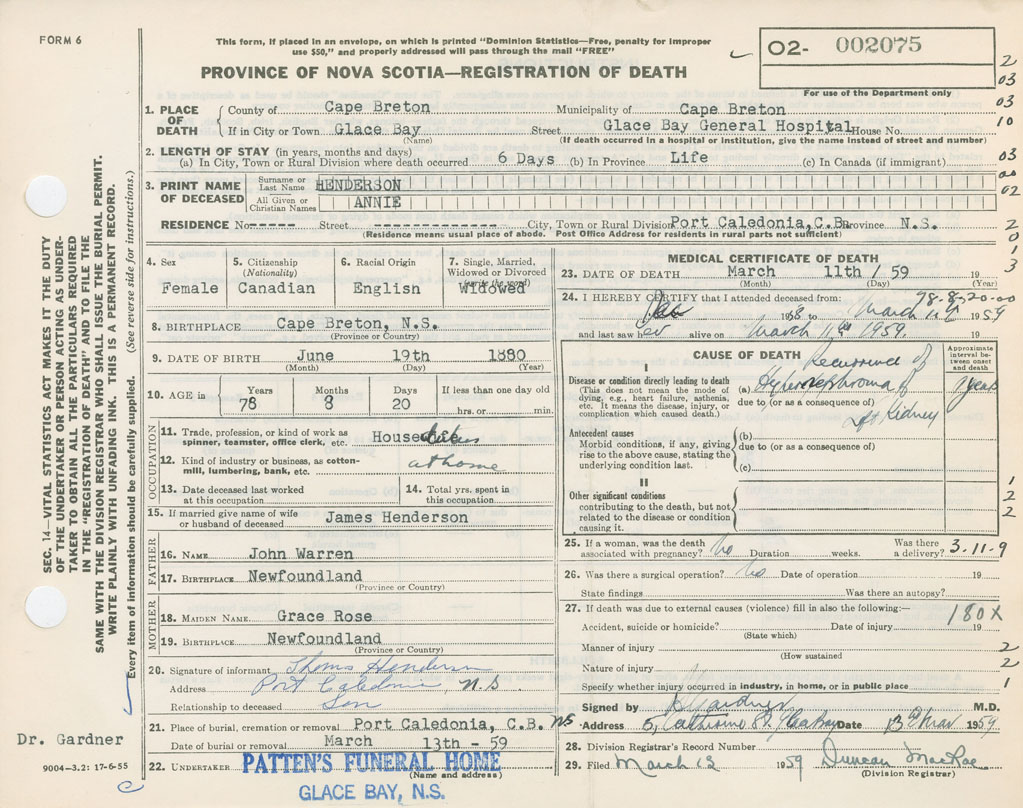 FORM 6
This form, if placed in an envelope, on which is printed "Dominion Statistics—Free, penalty for improper
use $50," and properly addressed will pass through the mail "FREE"
PROVINCE OF NOVA SCOTIA—REGISTRATION OF DEATH
O2- 002075
For use of the Department only
2
03
03
10
03
00
02
2
0
1
3
1. PLACE OF DEATH
County of Cape Breton Municipality of Cape Breton
If in City or Town Glace Bay Street Glace Bay General Hospital House No.
(Name) (If death occurred in a hospital or institution, give the name instead of street and number)
2. LENGTH OF STAY (in years, months and days)
(a) In City, Town or Rural Division where death occurred 6 Days (b) In Province Life (c) In Canada (if immigrant)
3. PRINT NAME OF DECEASED
Surname or Last Name HENDERSON
All Given or Christian Names ANNIE
RESIDENCE No. ------ Street ------ City, Town or Rural Division Port Caledonia, C.B. Province N.S.
(Residence means usual place of abode. Post Office Address for residents in rural parts not sufficient)
4. Sex 5. Citizenship (Nationality) 6. Racial Origin 7. Single, Married, Widowed or Divorced (write the word)
Female Canadian English Widowed
8. BIRTHPLACE Cape Breton, N.S.
(Province or Country)
9. DATE OF BIRTH June 19th 1880
(Month) (Day) (Year)
10. AGE in Years Months Days If less than one day old
78 8 20 hrs. or min.
OCCUPATION
11. Trade, profession, or kind of work as
spinner, teamster, office clerk, etc. House
12. Kind of industry or business, as cotton-
mill, lumbering, bank, etc. at home
13. Date deceased last worked at this occupation
14. Total yrs. spent in this occupation
15. If married give name of wife
or husband of deceased James Henderson
FATHER
16. NAME John Warren
17. BIRTHPLACE Newfoundland
(Province or Country)
MOTHER
18. MAIDEN NAME Grace Rose
19. BIRTHPLACE Newfoundland
(Province or Country)
20. Signature of informant Thoms Henderson
Address Port Caledonia, N.S
Relationship to deceased Son
21. Place of burial, cremation or removal Port Caledonia, C.B. NS
Date of burial or removal March 13th - 59
22. UNDERTAKER PATTEN'S FUNERAL HOME
(Name and address)
GLACE BAY, N.S.
MEDICAL CERTIFICATE OF DEATH
23. DATE OF DEATH March 11th / 59 19
(Month) (Day) (Year)
78-8-20-00
24. I HEREBY CERTIFY that I attended deceased from:
Dec 1958 to March 11th 1959
and last saw her alive on March 11th 1959. 19
CAUSE OF DEATH
Approximate interval between onset and death
I
Disease or condition directly leading to death
(This does not mean the mode of
dying, e.g., heart failure, asthenia,
etc. It means the disease, injury, or
complication which caused death.)
Recurrence of
(a) Hypernephroma of 1 year
due to (or as a consequence of)
Lft Kidney
Antecedent causes
Morbid conditions, if any, giving
rise to the above cause, stating the
underlying condition last.
(b)
due to (or as a consequence of)
(c)
II
Other significant conditions
contributing to the death, but not
related to the disease or condition
causing it.
1
2
2
25. If a woman, was the death
associated with pregnancy? No Duration weeks. Was there a delivery? 3-11-9
26. Was there a surgical operation? No Date of operation 19
State findings Was there an autopsy?
27. If death was due to external causes (violence) fill in also the following:—
180X
Accident, suicide or homicide? Date of injury 19
(State which)
Manner of injury 2
(How sustained
Nature of injury 2
Specify whether injury occurred in industry, in home, or in public place 1
Signed by Gardner M.D.
Address 5, Catherine St Glace Bay Date 13th Mar 1959
28. Division Registrar's Record Number
29. Filed March 13 1959 Duncan MacRae
(Division Registrar)
SEC. 14—VITAL STATISTICS ACT MAKES IT THE DUTY
OF THE UNDERTAKER OR PERSON ACTING AS UNDER-
TAKER TO OBTAIN ALL THE PARTICULARS REQUIRED
IN THE "REGISTRATION OF DEATH" AND TO FILE THE
SAME WITH THE DIVISION REGISTRAR WHO SHALL ISSUE THE BURIAL PERMIT.
WRITE PLAINLY WITH UNFADING INK. THIS IS A PERMANENT RECORD.
Every item of information should be carefully supplied. (See reverse side for instructions.)
Dr. Gardner
9004-3.2: 17-6-55